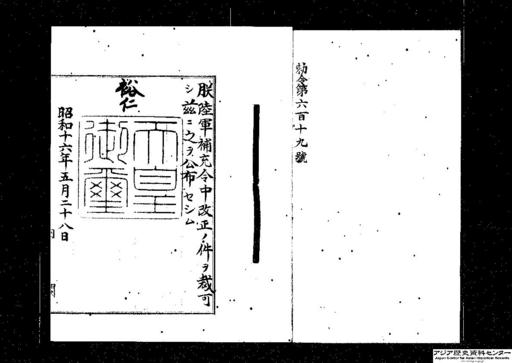 勅令第六百十九號
朕陸軍補充令中改正ノ件ヲ裁可
シ茲ニ之ヲ公布セシム
裕仁
天皇御璽
昭和十六年五月二十八日
アジア歴史資料センター
Japan Center for Asian Historical Records